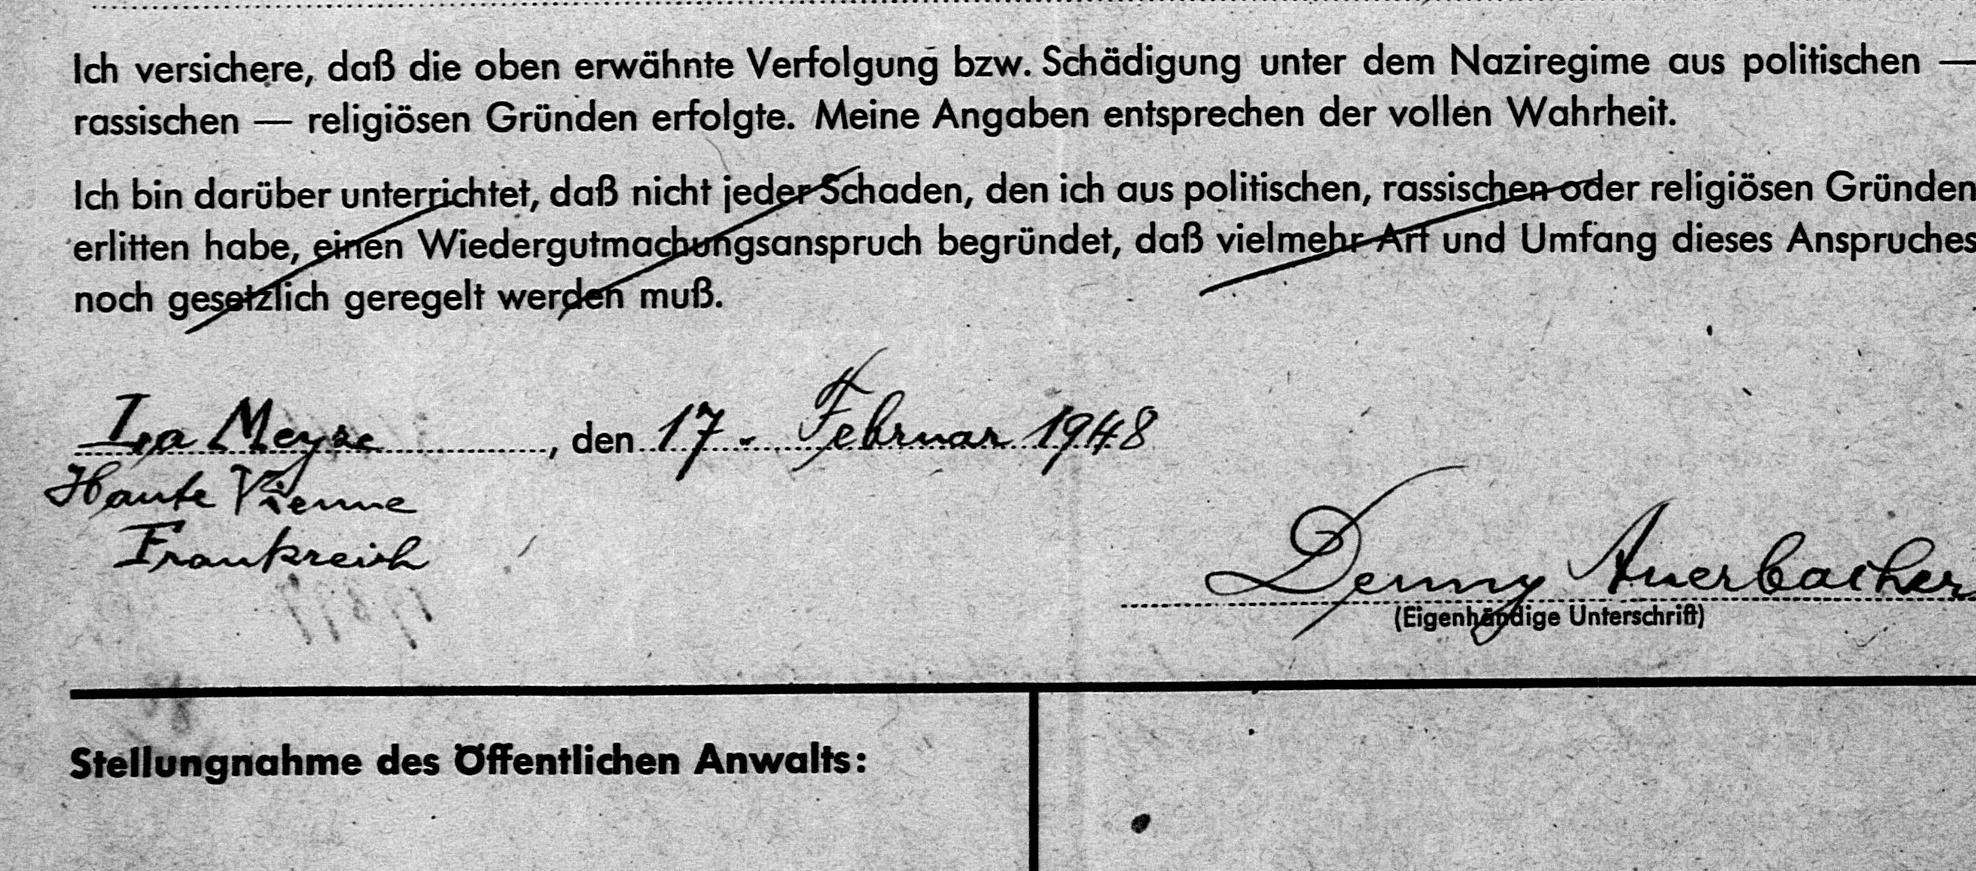 Ich versichere, daß die oben erwähnte Verfolgung bzw. Schädigung unter dem Naziregime aus politischen —
rassischen — religiösen Gründen erfolgte. Meine Angaben entsprechen der vollen Wahrheit.
Ich bin darüber unterrichtet, daß nicht jeder Schaden, den ich aus politischen, rassischen oder religiösen Gründen
erlitten habe, einen Wiedergutmachungsanspruch begründet, daß vielmehr Art und Umfang dieses Anspruches
noch gesetzlich geregelt werden muß.
La Meyze, den 17. Februar 1948
Haute Vienne
Frankreich
Denny Auerbacher
(Eigenhändige Unterschrift)
Stellungnahme des Öffentlichen Anwalts: